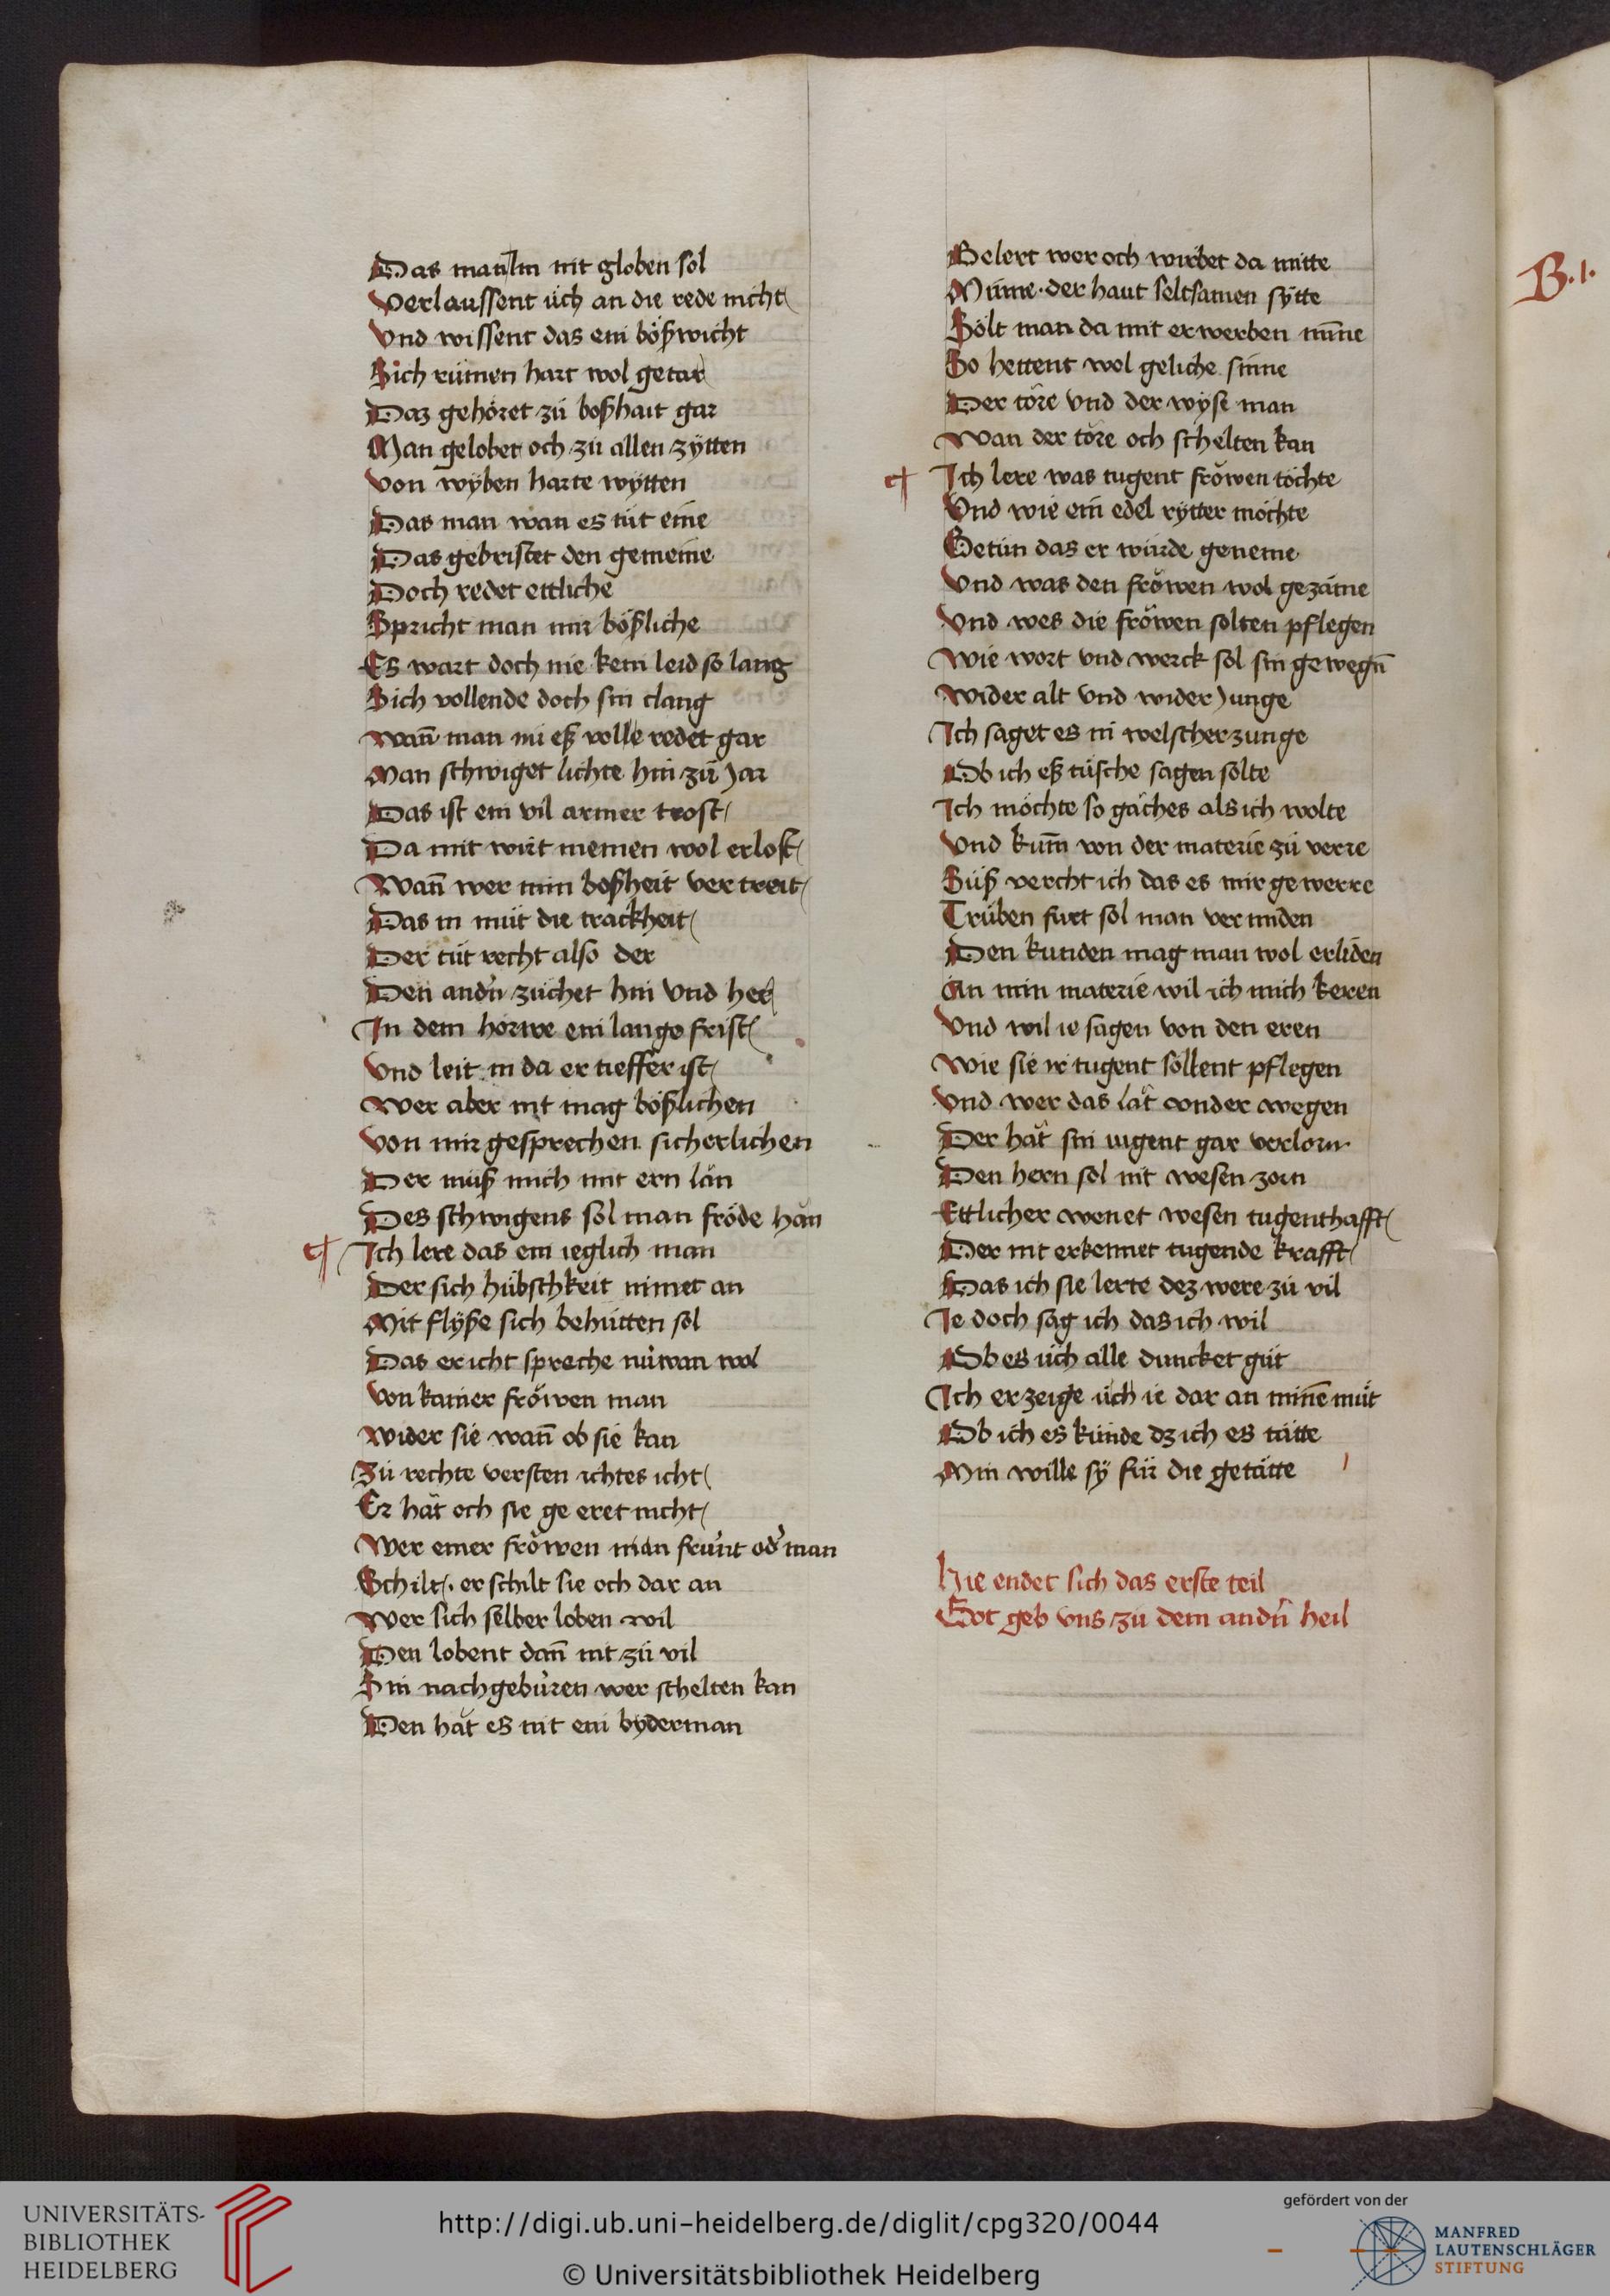 Das man Im nit globen sol
Verlaussent üch an die rede nicht
Vnd wissent das ein bößwicht
Sich rümen hart wol getar
Daz gehöret zü boßhait gar
Man gelobet och zü allen zÿtten
Von wÿben harte wÿtten
Das man wan es tüt eine
Das gebristet den gemeine
Doch redet ettliche
Spricht man mir bößliche
Es wart doch nie kein leid so lang
Sich vollende doch sin clang
Wan̄ man nü eß volle redet gar
Man schwiget lichte hin zü Jar
Das ist ein vil armer trost
Da mit wirt niemen wol erlost
Wan̄ wer min boßheit vertreit
Das in müt die trackheit
Der tüt recht also der
Den andn̄ züchet hin vnd her
In dem horwe ein lange frist
Vnd leit in da er tieffer ist
Wer aber nit mag bößlichen
Von mir gesprechen sicherlichen
Der müß mich mit ern län
Des schwigens sol man fröde hän
Ich lere das ein ieglich man
Der sich hübschkeit nimet an
Mit flÿße sich behütten sol
Das er icht spreche nüwan wol
Von kainer fröwen man
Wider sie wan̄ ob sie kan
Zü rechte versten ichtes icht
Er hät och sie ge eret nicht
Wer einer fröwen man frünt od' man
Schilt. er schilt sie och dar an
Wer sich selber loben wil
Den lobent dan̄ nit zü vil
Sin nachgebüren wer schelten kan
Den hät es nit ein byderman
Belert wer och wirbet da mitte
Minne. der haut seltsamen sÿtte
Sölt man da mit erwerben min̄e
So hettent wol geliche sinne
Der töre vnd der wÿse man
Wan der töre och schelten kan
Ich lere was tugent fröwen töchte
Vnd wie ein edel rÿtter möchte
Getün das er würde geneme
Vnd was den fröwen wol gezäme
Vnd wes die fröwen solten pflegen
Wie wort vnd werck sol sin gewegn̄
Wider alt vnd wider Junge
Ich saget es in welscher zunge
Ob ich eß tüsche sagen solte
Ich möchte so gäches als ich wolte
Vnd kum̄ von der materie zü verre
Süß vercht ich das es mir gewerre
Trüben furt sol man vermiden
Den kunden mag man wol erliden
An min materie wil ich mich keren
Vnd wil ie sagen von den eren
Wie sie ir tugent söllent pflegen
Vnd wer das lät vnder wegen
Der hät sin iugent gar verlorn
Den hern sol nit wesen zorn
Ettlicher wenet wesen tugenthafft
Der nit erkennet tugende krafft
Das ich sie lerte dez were zü vil
Ie doch sag ich das ich wil
Ob es üch alle duncket güt
Ich erzeige üch ie dar an minē müt
Ob ich es künde dz ich es tätte
Min wille sÿ für die getätte
Hie endet sich das erste teil
Got geb vns zü dem andn̄ heil
B.1.
UNIVERSITÄTS-
BIBLIOTHEK
HEIDELBERG
http://digi.ub.uni-heidelberg.de/diglit/cpg320/0044
© Universitätsbibliothek Heidelberg
gefördert von der
MANFRED
LAUTENSCHLÄGER
STIFTUNG